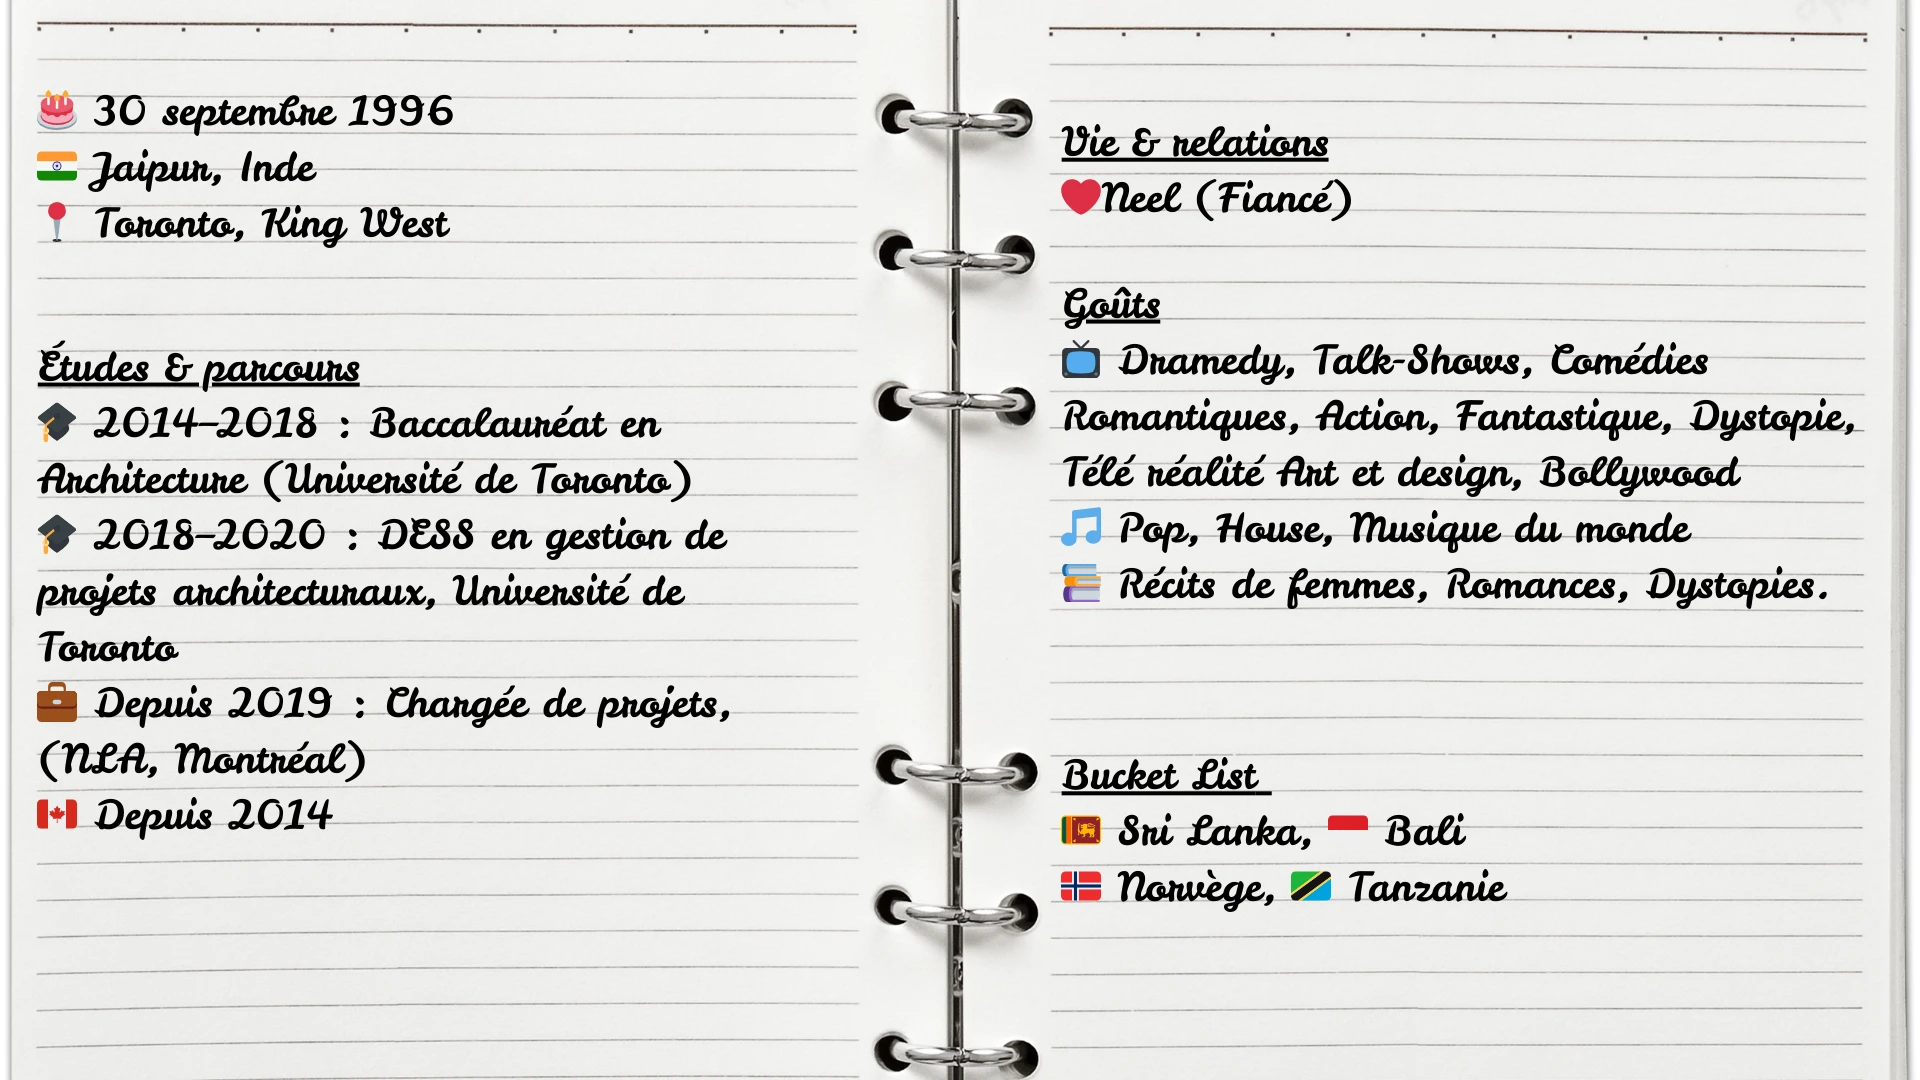 🎂 30 septembre 1996
🇮🇳 Jaipur, Inde
📍 Toronto, King West
Études & parcours
🎓 2014–2018 : Baccalauréat en
Architecture (Université de Toronto)
🎓 2018–2020 : DESS en gestion de
projets architecturaux, Université de
Toronto
💼 Depuis 2019 : Chargée de projets,
(NLA, Montréal)
🇨🇦 Depuis 2014
Vie & relations
❤️Neel (Fiancé)
Goûts
📺 Dramedy, Talk-Shows, Comédies
Romantiques, Action, Fantastique, Dystopie,
Télé réalité Art et design, Bollywood
🎵 Pop, House, Musique du monde
📚 Récits de femmes, Romances, Dystopies.
Bucket List
🇱🇰 Sri Lanka, 🇮🇩 Bali
🇳🇴 Norvège, 🇹🇿 Tanzanie